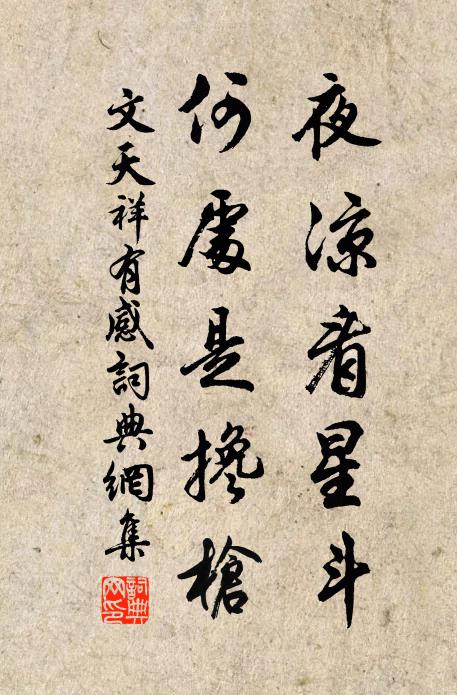 夜涼看星斗
何處是攙槍
文天祥有感詞典網集
詞典網印